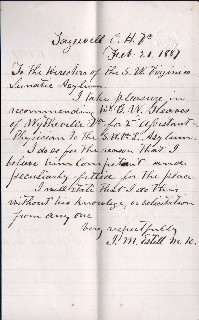 Tazewell C. H. Va
Feb. 21 1887
To the Directors of the S. W. Virginia
Lunatic Asylum.
I take pleasure in
recommending Dr. C. W. Gleaves
of Wytheville Va. for 2d Assistant
Physician to the S. W. Va L. Asylum.
I do so for the reason that I
believe him competent and
peculiarly fitted for the place
I will state that I do this
without his knowledge, or solicitation
from any one
Very respectfully
M. Estill M. D.